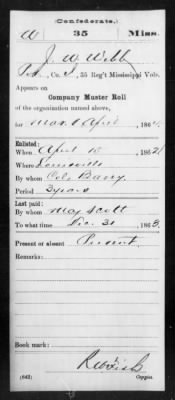 (Confederate.)
W 35 Miss.
J. W. Webb
Co. I, 35 Reg't Mississippi Vols.
Appears on
Company Muster Roll
of the organization named above,
for Mar & April, 1864.
Enlisted:
When April 10, 1862
Where Louisville
By whom Col. Barry
Period 3 years
Last paid:
By whom Maj Scott
To what time Dec. 31, 1863.
Present or absent Present
Remarks:
Book mark:
(642) Copyist.